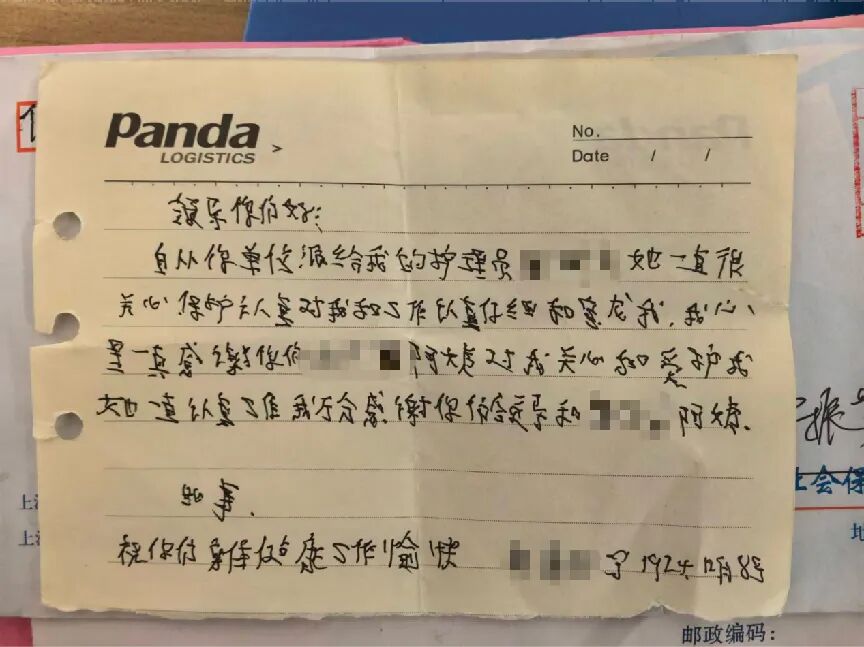 Panda
LOGISTICS >
No.
Date / /
领导你们好:
自从你单位派给我的护理员 她一直很
关心保护 认真对我和工作认真仔细和 我,我心
里一真感谢你们 阿姨对我关心和爱护我
她一直认真 我万分感谢你们领导和 阿姨.
此事.
祝你们身体健康工作愉快
12月8号
上会保
邮政编码: